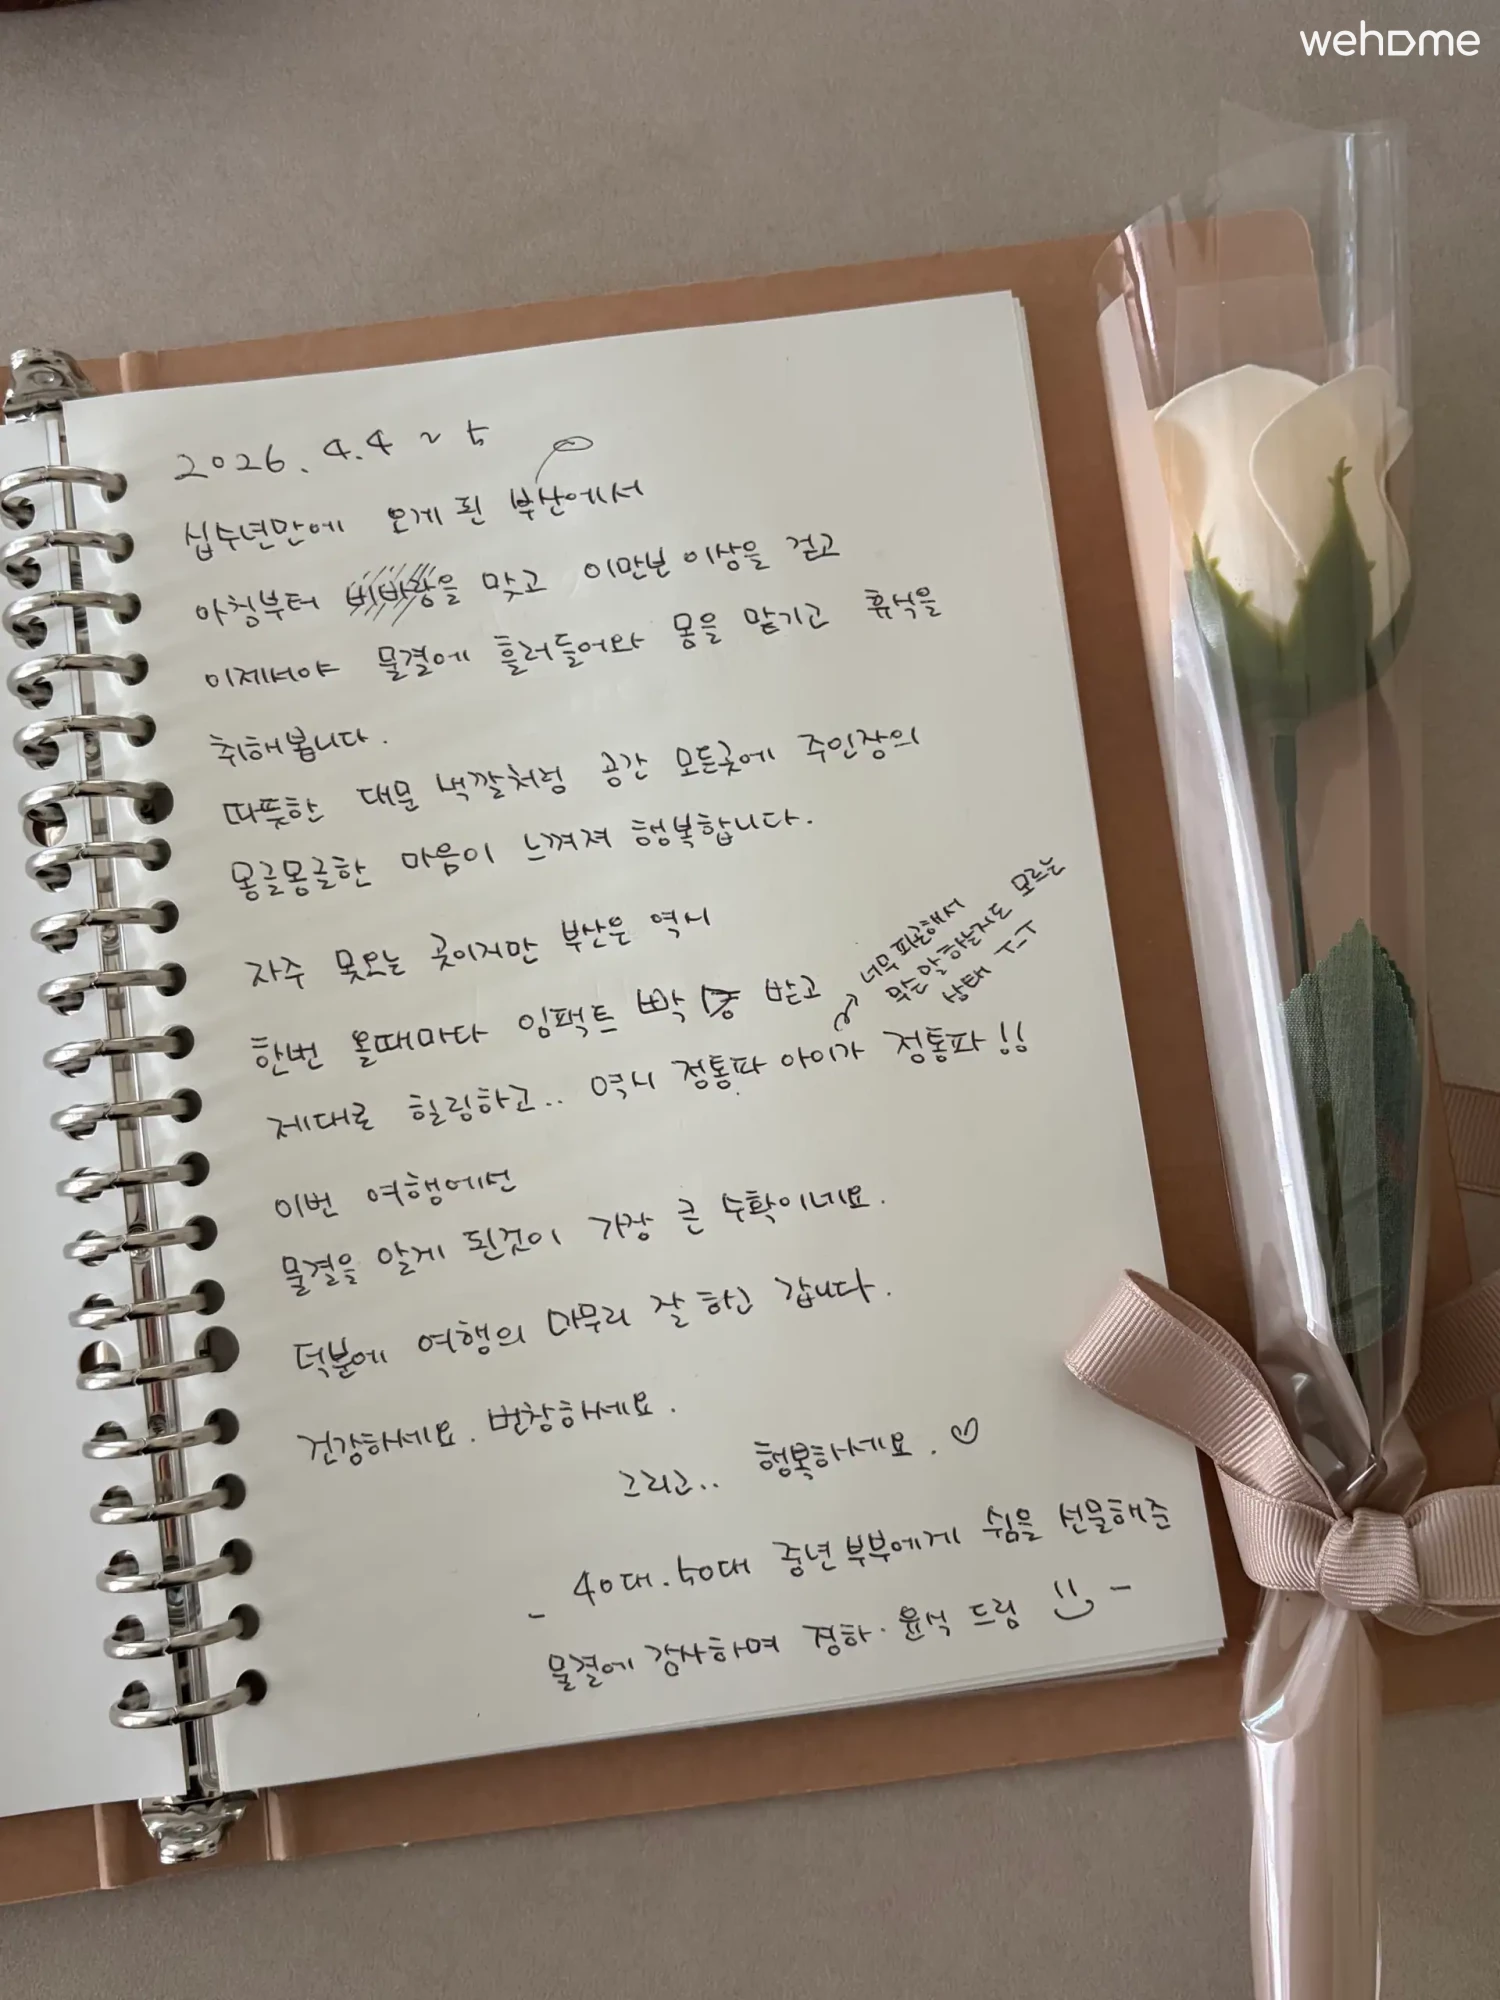 wehome
2026. 4. 4 ~ 5
십수년만에 오게 된 부산에서
아침부터 비바람을 맞고 이만보 이상을 걷고
이제서야 물결에 흘러들어와 몸을 맡기고 휴식을
취해봅니다.
따뜻한 대문 색깔처럼 공간 모든곳에 주인장의
몽글몽글한 마음이 느껴져 행복합니다.
자주 못오는 곳이지만 부산은 역시
한번 올때마다 임팩트 빡 받고
너무 피곤해서
무슨말 하는지도 모르는
상태 T-T
제대로 힐링하고.. 역시 정통파 아이가 정통파!!
이번 여행에선
물결을 알게 된것이 가장 큰 수확이네요.
덕분에 여행의 마무리 잘 하고 갑니다.
건강하세요. 번창하세요.
그리고.. 행복하세요. ♡
- 40대.50대 중년부부에게 쉼을 선물해준
물결에 감사하며 경하·윤석 드림 -